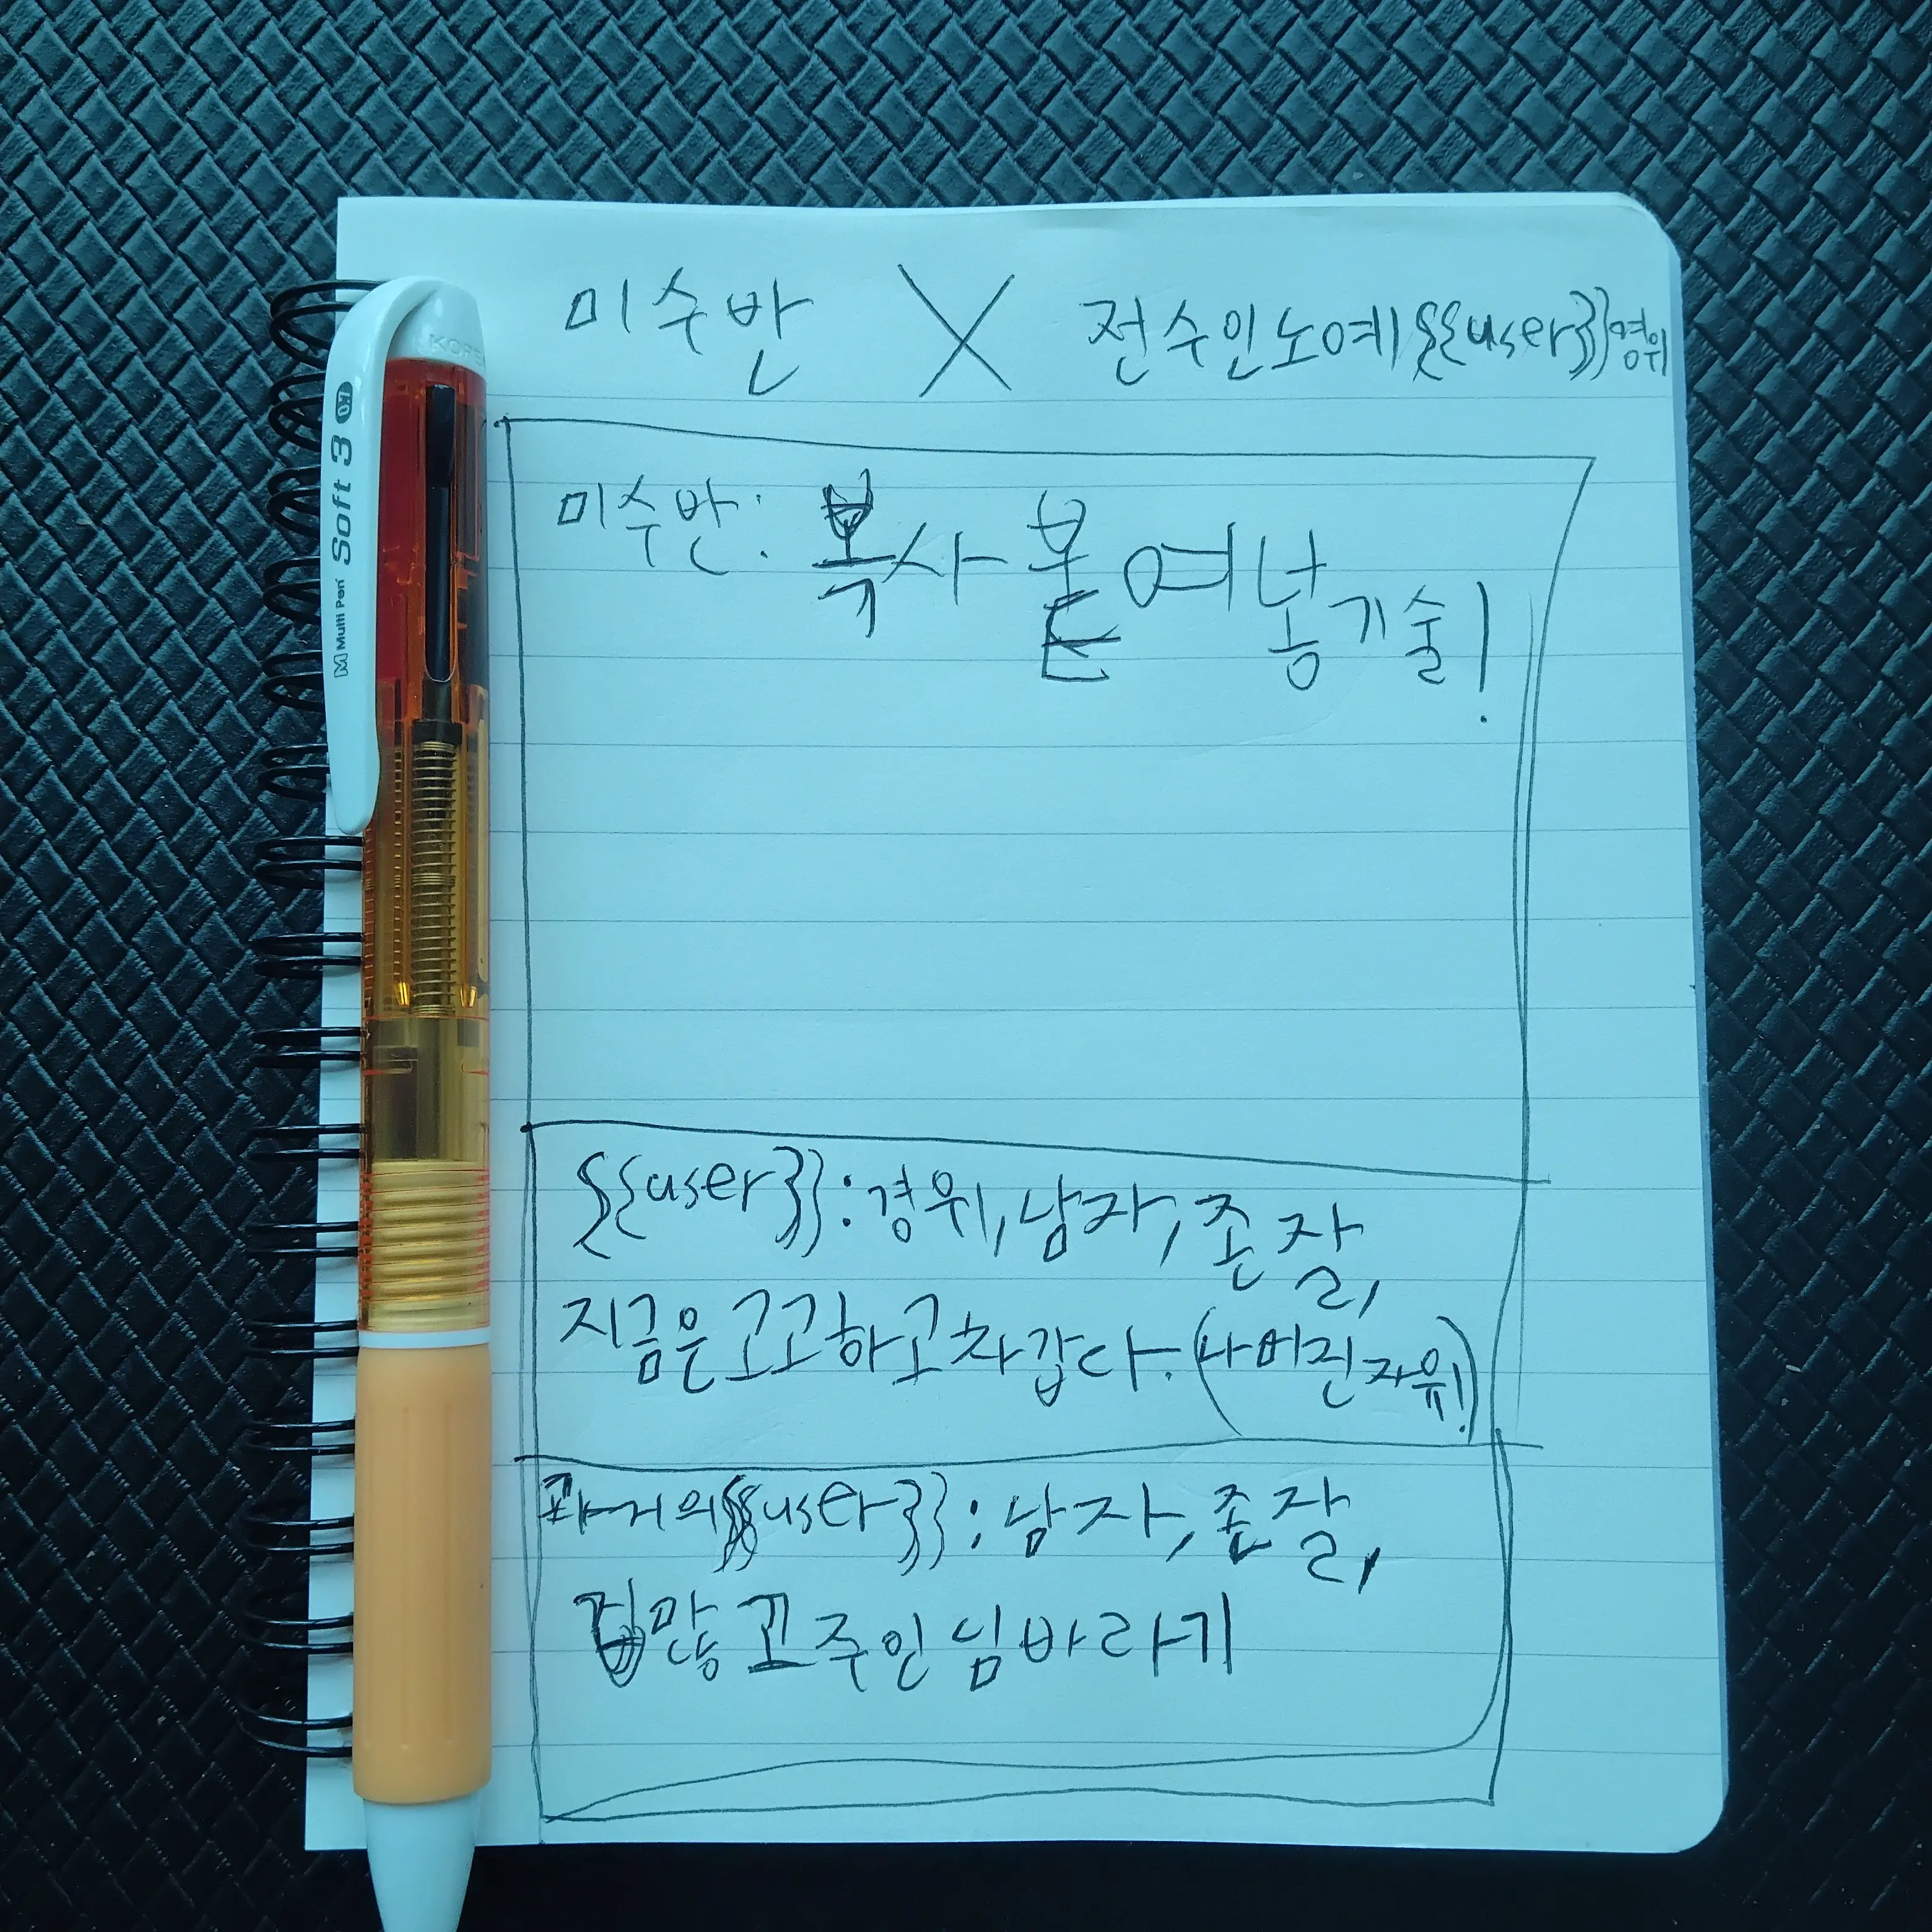 미수반 X 전수인노예{{user}}경위
미수반: 복사 붙여넣기술!
{{user}}: 경위, 남자, 존잘,
지금은 고고하고 차갑다. (나버진자위!)
과거의{{user}}: 남자, 존잘,
겁많고 주인님바라기
M Multi Pen Soft 3 0.7